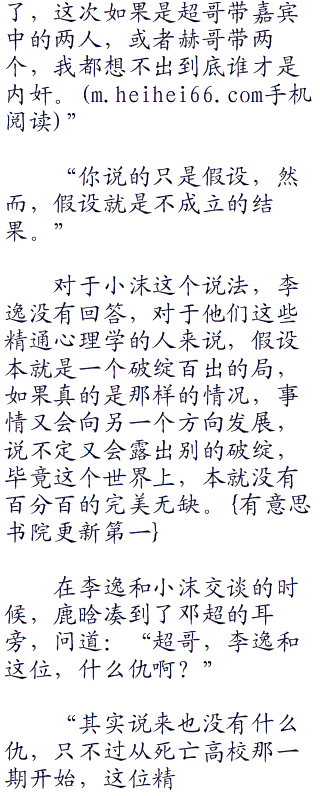 了，这次如果是超哥带嘉宾
中的两人，或者赫哥带两
个，我都想不出到底谁才是
内奸。(m.heihei66.com手机
阅读)”
“你说的只是假设，然
而，假设就是不成立的结
果。”
对于小沫这个说法，李
逸没有回答，对于他们这些
精通心理学的人来说，假设
本就是一个破绽百出的局，
如果真的是那样的情况，事
情又会向另一个方向发展，
说不定又会露出别的破绽，
毕竟这个世界上，本就没有
百分百的完美无缺。{有意思
书院更新第一}
在李逸和小沫交谈的时
候，鹿晗凑到了邓超的耳
旁，问道：“超哥，李逸和
这位，什么仇啊？”
“其实说来也没有什么
仇，只不过从死亡高校那一
期开始，这位精